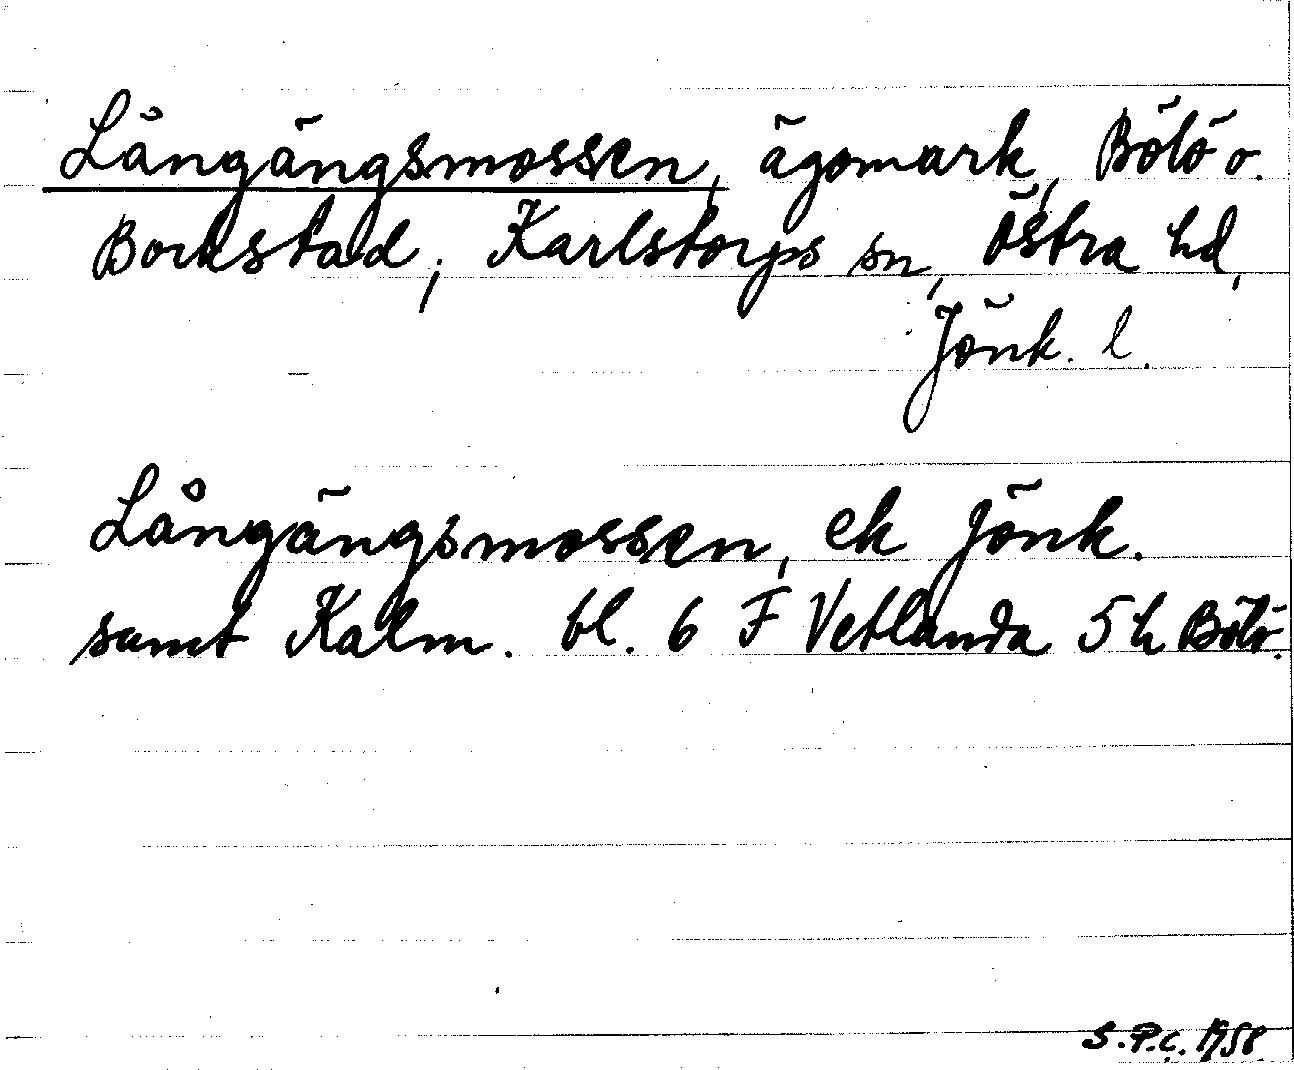 Långängsmossen, ägomark, Bölö o.
Bockstad, Karlstorps sn, Östra hd,
Jönk. l.
Långängsmossen, ek Jönk.
samt Kalm. bl. 6 F Vetlanda 5 h Bölö.
S.P.C. 1958